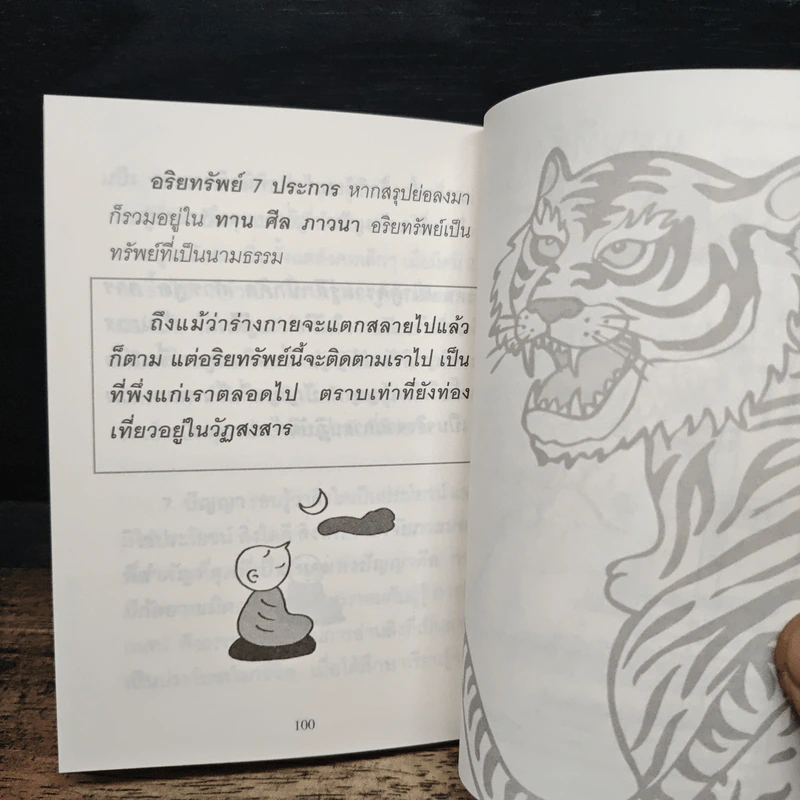 อริยทรัพย์ 7 ประการ หากสรุปย่อลงมา
ก็รวมอยู่ใน ทาน ศีล ภาวนา อริยทรัพย์เป็น
ทรัพย์ที่เป็นนามธรรม
ถึงแม้ว่าร่างกายจะแตกสลายไปแล้ว
ก็ตาม แต่อริยทรัพย์นี้จะติดตามเราไป เป็น
ที่พึ่งแก่เราตลอดไป ตราบเท่าที่ยังท่อง
เที่ยวอยู่ในวัฏสงสาร
100